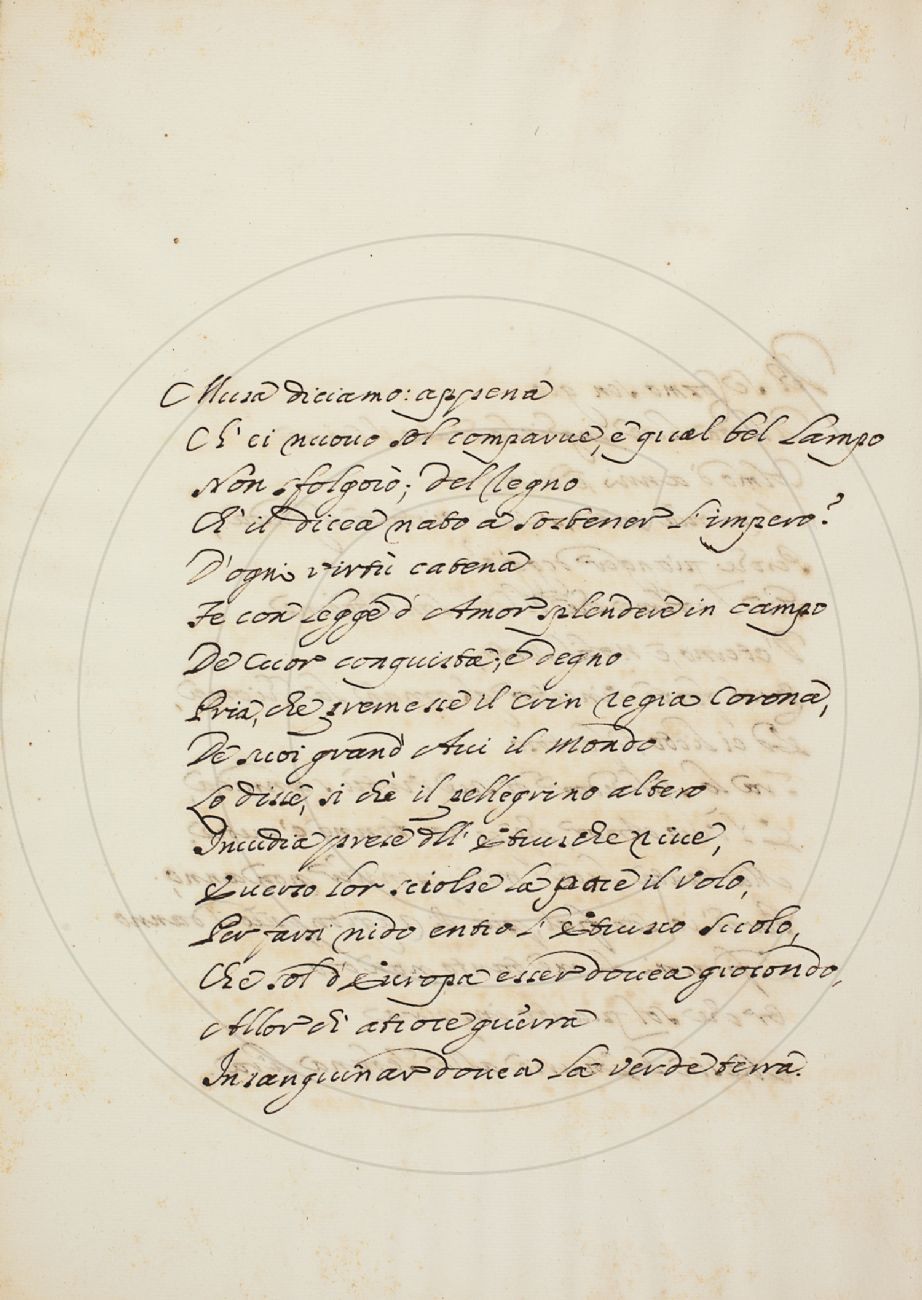 Musa diciamo: appena
Ch' ei nuouo sol comparue, e qual bel lampo
Non sfolgoiò; del Regno
Ch' il dicea nato a sostener l'impero?
D'ogni virtù catena
Fe con legge d' Amor splendere in campo
De cuor conquista; e degno
Pria, che premesse il crin regia Corona,
De suoi grand' Aui il mondo
Lo disse, si che il pellegrino altero
Inuidia prese dll' Etrusche riue,
E uerso lor sciolse la pace il volo,
Per farsi nido entro l' Etrusco Suolo,
Che sol d' Europa esser douea giocondo,
Allor ch' atroce guerra
Insanguinar douea la verde terra.